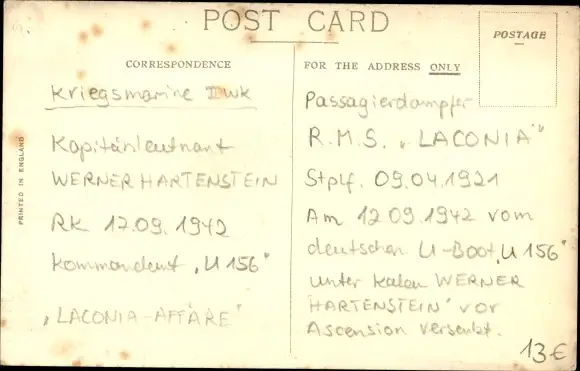 POST CARD
POSTAGE
CORRESPONDENCE
FOR THE ADDRESS ONLY
PRINTED IN ENGLAND
Kriegsmarine IIwk
Kapitänleutnant
WERNER HARTENSTEIN
RK 17.09.1942
Kommandant „U 156"
„LACONIA-AFFÄRE"
Passagierdampfer
R.M.S. „LACONIA"
Stplf. 09.04.1921
Am 12 09.1942 vom
deutschen U-Boot „U 156"
unter WERNER
HARTENSTEIN vor
Ascension versenkt.
13€